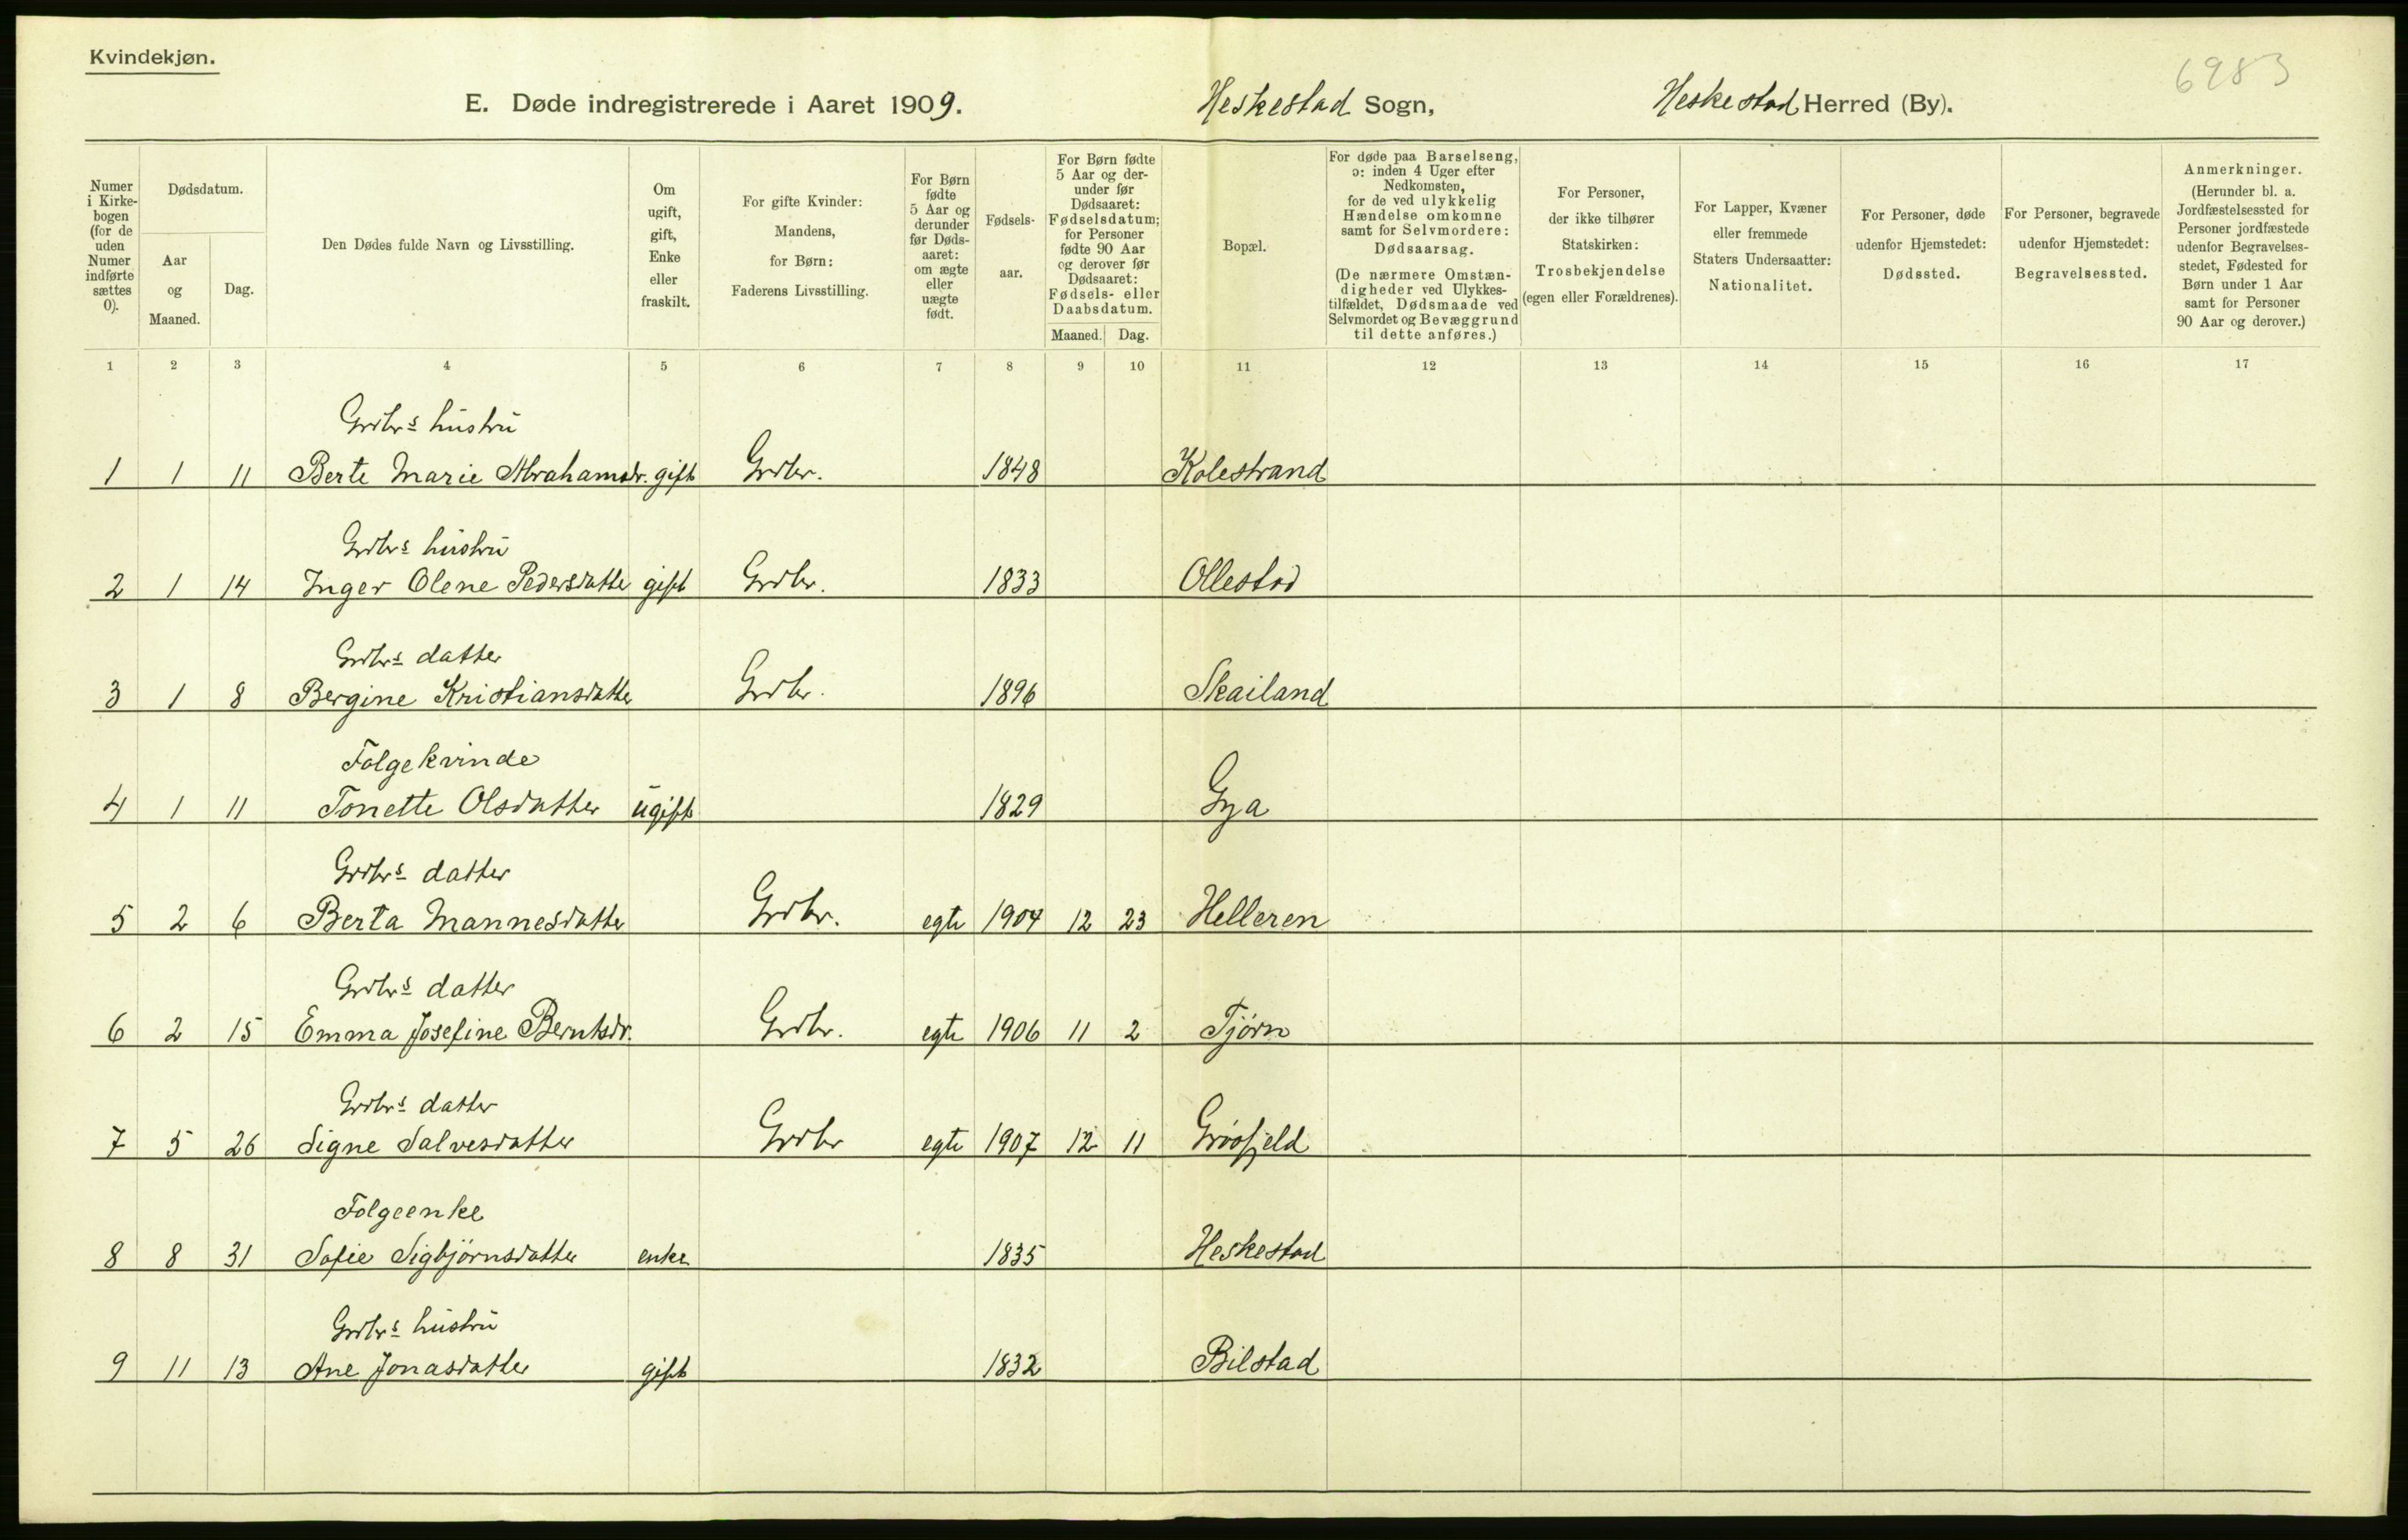 Kvindekjøn.
6983
E. Døde indregistrerede i Aaret 1909. Heskestad Sogn, Heskestad Herred (By).
Numer i Kirke-bogen (for de uden Numer indførte sættes 0).
Dødsdatum.
Aar og Maaned.
Dag.
Den Dødes fulde Navn og Livsstilling.
Om ugift, gift, Enke eller fraskilt.
For gifte Kvinder: Mandens, for Børn: Faderens Livsstilling.
For Børn fødte 5 Aar og derunder før Døds-aaret: om ægte eller uægte født.
Fødsels-aar.
For Børn fødte 5 Aar og der-under før Dødsaaret: Fødselsdatum; for Personer fødte 90 Aar og derover før Dødsaaret: Fødsels- eller Daabsdatum.
Maaned. Dag.
Bopæl.
For døde paa Barselseng, ɔ: inden 4 Uger efter Nedkomsten, for de ved ulykkelig Hændelse omkomne samt for Selvmordere: Dødsaarsag.
(De nærmere Omstæn-digheder ved Ulykkes-tilfældet, Dødsmaade ved Selvmordet og Bevæggrund til dette anføres.)
For Personer, der ikke tilhører Statskirken: Trosbekjendelse (egen eller Forældrenes).
For Lapper, Kvæner eller fremmede Staters Undersaatter: Nationalitet.
For Personer, døde udenfor Hjemstedet: Dødssted.
For Personer, begravede udenfor Hjemstedet: Begravelsessted.
Anmerkninger. (Herunder bl. a. Jordfæstelsessted for Personer jordfæstede udenfor Begravelses-stedet, Fødested for Børn under 1 Aar samt for Personer 90 Aar og derover.)
1 2 3 4 5 6 7 8 9 10 11 12 13 14 15 16 17
Grdbrs hustru
1 1 11 Berte Marie Abrahamsdr. gift Grdbr. 1848 Kolestrand
Grdbrs hustru
2 1 14 Inger Olene Pedersdatter gift Grdbr. 1833 Ollestad
Grdbrs datter
3 1 8 Bergine Kristiansdatter Grdbr. 1896 Skailand
Folgekvinde
4 1 11 Tonette Olsdatter ugift 1829 Gya
Grdbrs datter
5 2 6 Berta Mannesdatter Grdbr. egte 1904 12 23 Helleren
Grdbrs datter
6 2 15 Emma Josefine Berntsdr. Grdbr. egte 1906 11 2 Tjørn
Grdbrs datter
7 5 26 Signe Salvesdatter Grdbr egte 1907 12 11
Folgeenke
8 8 31 Sofie Sigbjørnsdatter enke 1835 Heskestad
Grdbrs hustru
9 11 13 Ane Jonasdatter gift 1832 Bilstad